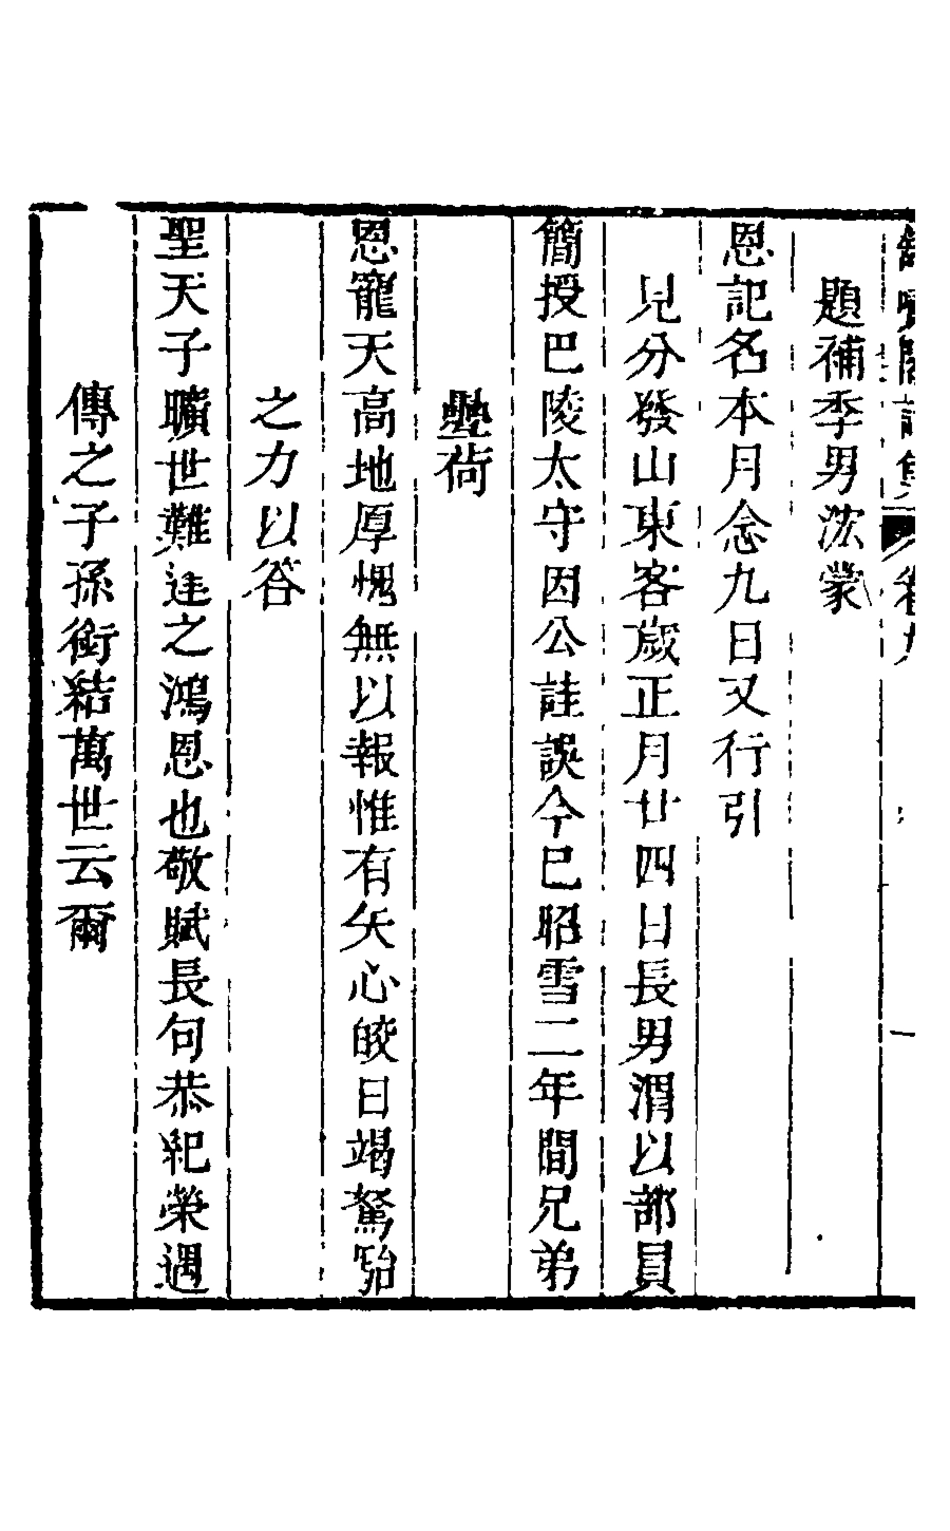 題補季男浤蒙
恩記名本月念九日又行引
見分發山東客歲正月廿四日長男渭以部員
簡授巴陵太守因公詿誤今已昭雪二年間兄弟
疊荷
恩寵天高地厚愧無以報惟有矢心皎日竭駑駘
之力以答
聖天子曠世難逢之鴻恩也敬賦長句恭紀榮遇
傳之子孫銜結萬世云爾